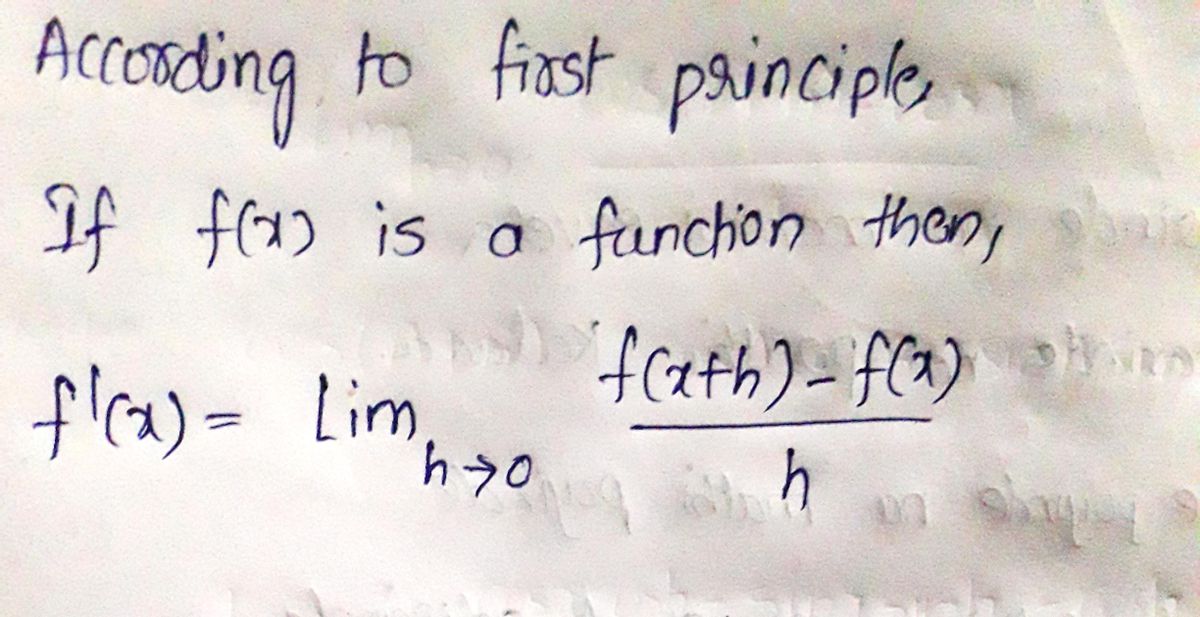 According to first principle,
If f(x) is a function then,
f'(x) = Lim h→0 f(x+h) - f(x) / h